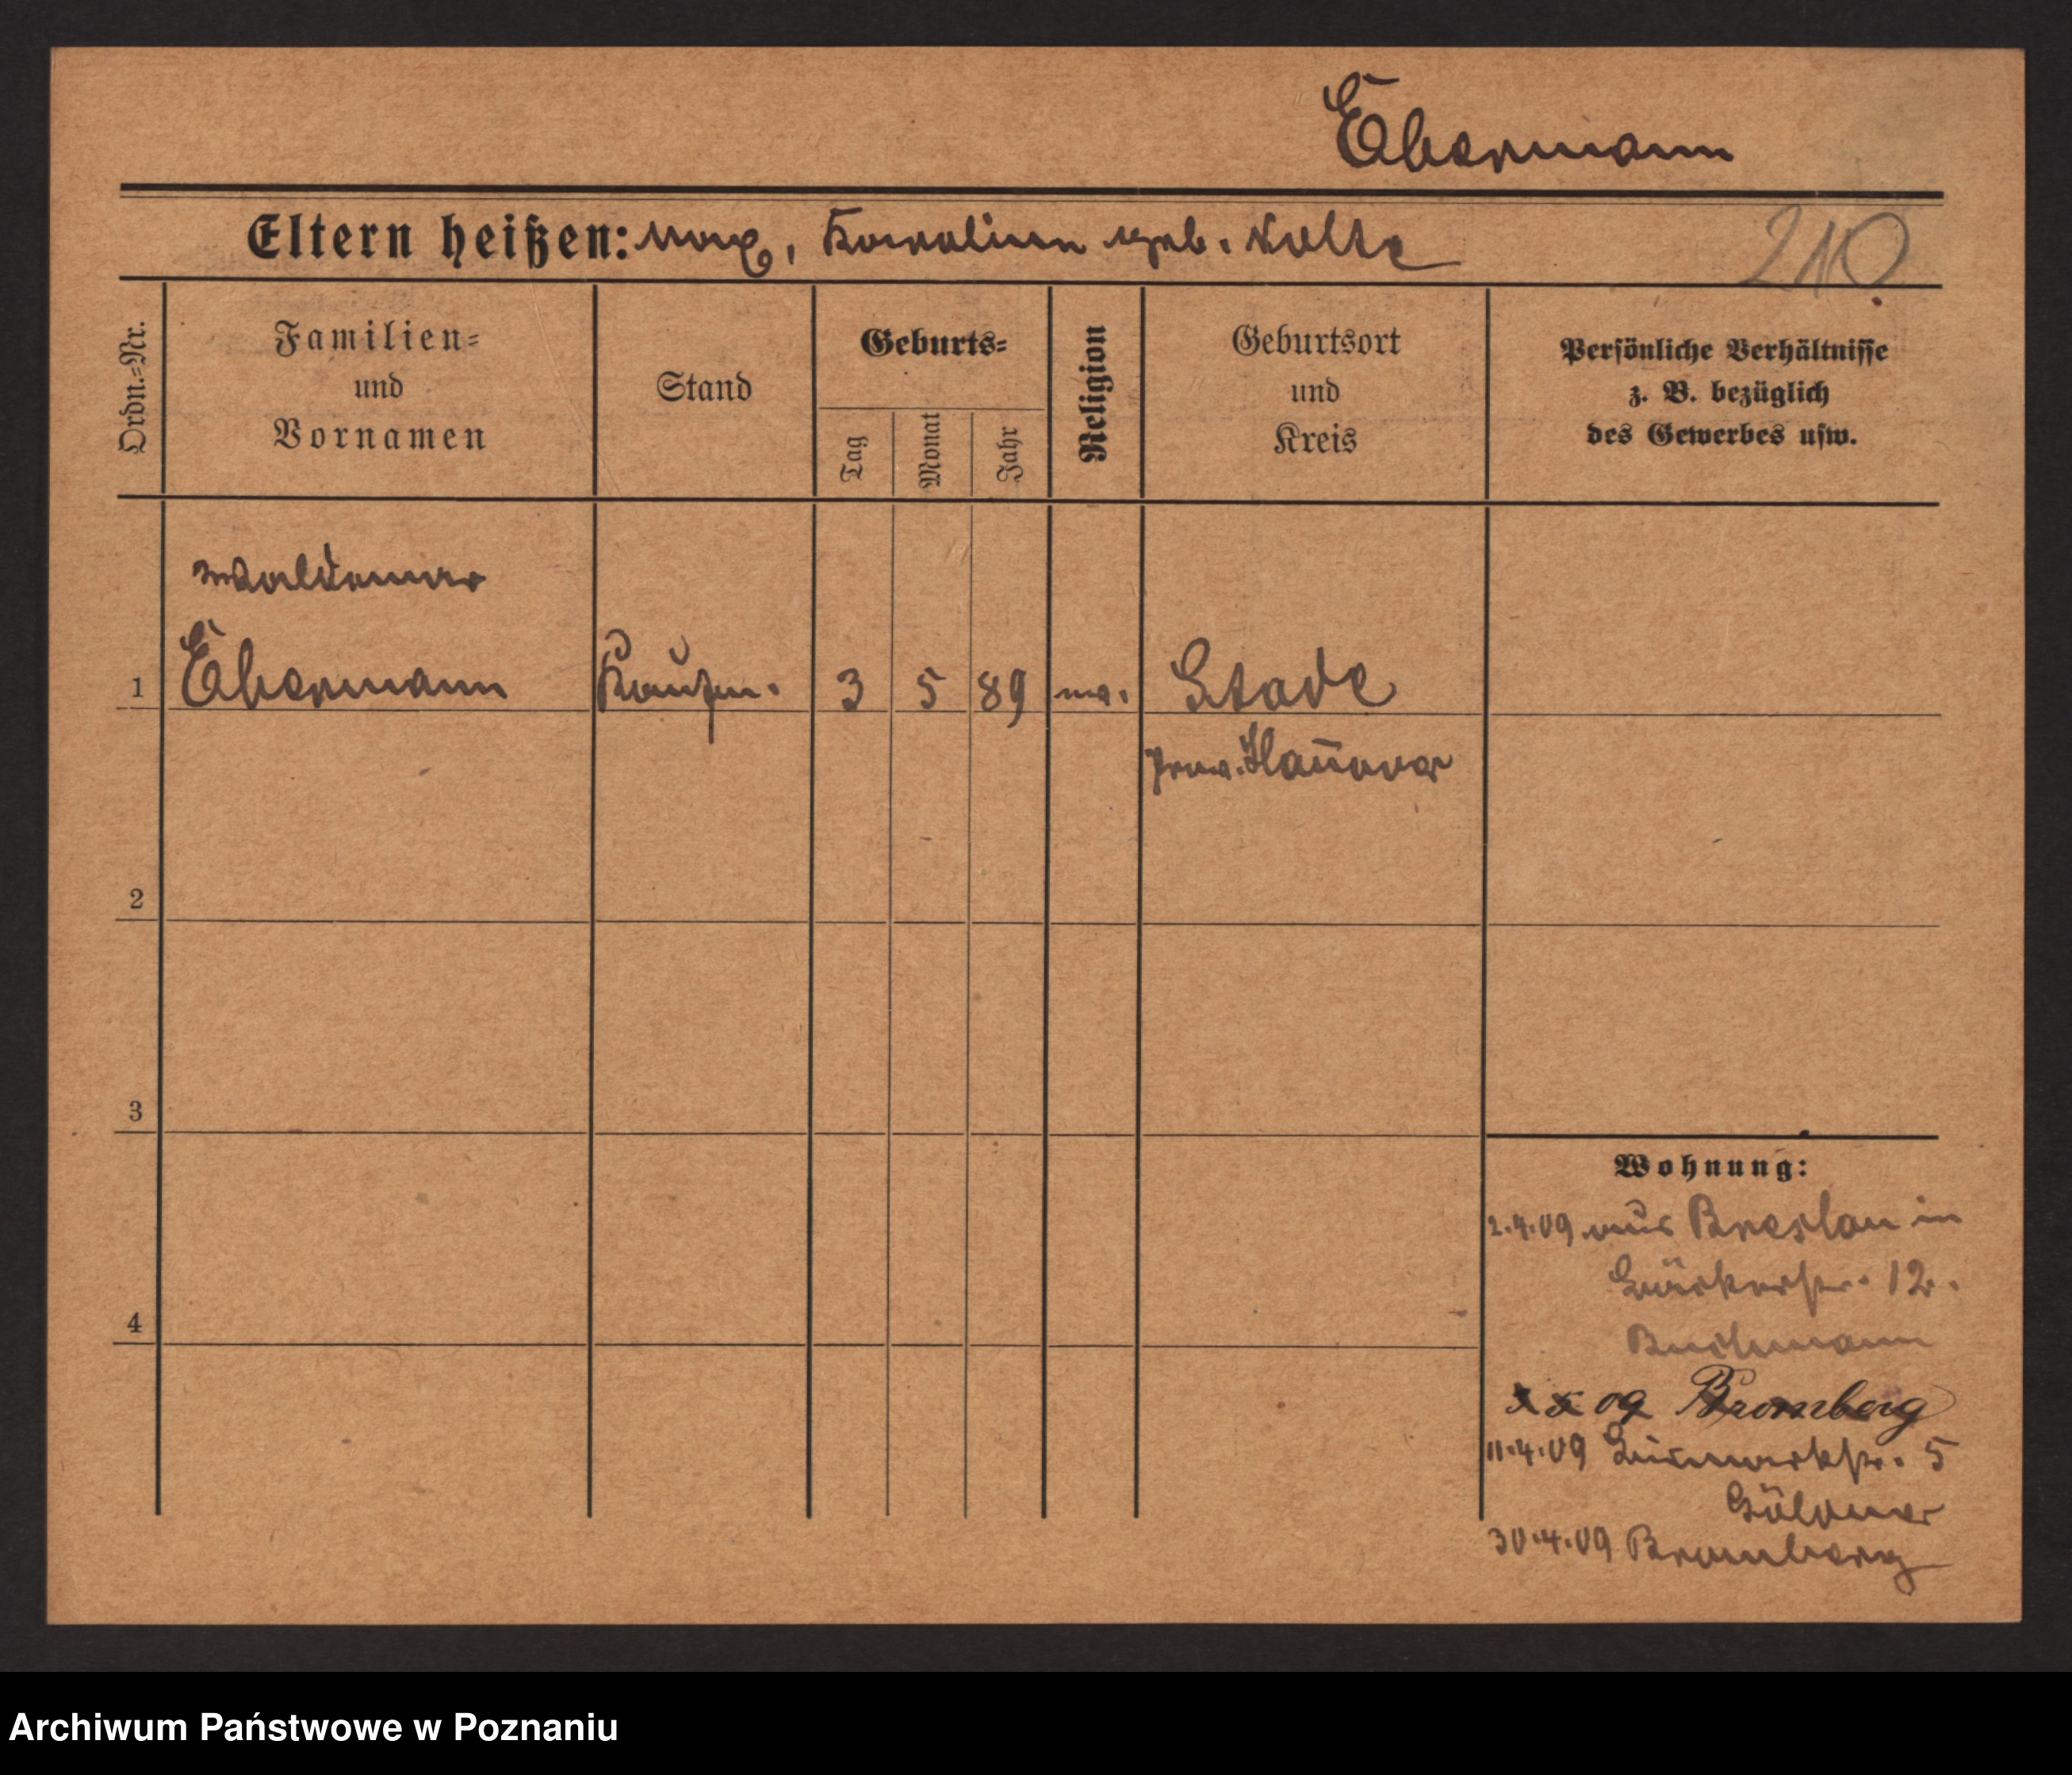 Ebermann
Eltern heißen: Max, Karoline geb. Nolte
210
Ordn.=Nr.
Familien=
und
Vornamen
Stand
Geburts=
Tag
Monat
Jahr
Religion
Geburtsort
und
Kreis
Persönliche Verhältnisse
z. B. bezüglich
des Gewerbes usw.
Waldemar
1 Ebermann Kaufm. 3 5 89 Stade
Prov. Han̄over
2
3
4
Wohnung:
2.4.09 aus Breslau in
12.
Buchmann
09 Bromberg
11.4.09 5
30.4.09 Bromberg
Archiwum Państwowe w Poznaniu